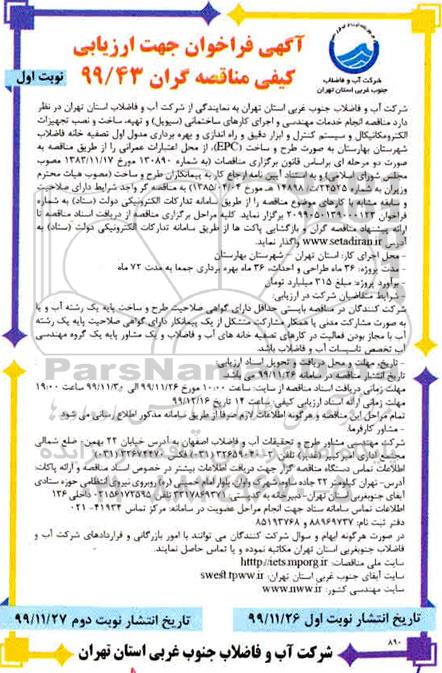 آگهی فراخوان جهت ارزیابی
کیفی مناقصه گران ۹۹/۴۳
نوبت اول
شرکت آب و فاضلاب
جنوب غربی استان تهران
شرکت آب و فاضلاب جنوب غربی استان تهران به نمایندگی از شرکت آب و فاضلاب استان تهران در نظر
دارد مناقصه انجام خدمات مهندسی و اجرای کارهای ساختمانی (سیویل) و تهیه، ساخت و نصب تجهیزات
الکترومکانیکال و سیستم کنترل و ابزار دقیق و راه اندازی و بهره برداری مدول اول تصفیه خانه فاضلاب
شهرستان بهارستان به صورت طرح و ساخت (EPC)، از محل اعتبارات عمرانی را از طریق مناقصه به
صورت دو مرحله ای براساس قانون برگزاری مناقصات (به شماره ۱۳۰۸۹۰ مورخ ۱۳۸۳/۱۱/۱۷ مصوب
مجلس شورای اسلامی) و به استناد آیین نامه ارجاع کار به پیمانکاران طرح و ساخت (مصوب هیات محترم
وزیران به شماره ۲۴۵۲۵/ت ۱۴۸۹۸ هـ مورخ ۱۳۸۵/۰۴/۰۴) به مناقصه گر واجد شرایط دارای صلاحیت
و سابقه مشابه با کارهای موضوع مناقصه را از طریق سامانه تدارکات الکترونیکی دولت (ستاد) به شماره
فراخوان ۲۰۹۹۰۵۰۱۳۹۰۰۰۱۲۳ برگزار نماید. کلیه مراحل برگزاری مناقصه از دریافت اسناد مناقصه تا
ارائه پیشنهاد مناقصه گران و بازگشایی پاکت ها از طریق سامانه تدارکات الکترونیکی دولت (ستاد) به
آدرس www.setadiran.ir واگذار نماید.
- محل اجرای کار: استان تهران - شهرستان بهارستان
- مدت پروژه: ۳۶ ماه طراحی و احداث، ۳۶ ماه بهره برداری جمعا به مدت ۷۲ ماه
- برآورد پروژه: مبلغ ۳۱۵ میلیارد تومان
- شرایط متقاضیان شرکت در ارزیابی:
شرکت کنندگان در مناقصه بایستی حداقل دارای گواهی صلاحیت طرح و ساخت پایه یک رشته آب و یا
به صورت مشارکت مدنی یا همکار مشارکت متشکل از یک پیمانکار دارای گواهی صلاحیت پایه یک رشته
آب با مجاز بودن فعالیت در کارهای تصفیه خانه های آب و فاضلاب و یک مشاور پایه یک گروه مهندسی
آب تخصص تاسیسات آب و فاضلاب باشد.
- تاریخ، مهلت و محل دریافت و تحویل اسناد ارزیابی:
تاریخ انتشار مناقصه در سامانه ۹۹/۱۱/۲۶ می باشد
مهلت زمانی دریافت اسناد مناقصه از سایت: ساعت ۱۰:۰۰ مورخ ۹۹/۱۱/۲۶ الی ۹۹/۱۱/۳۰ ساعت ۱۹:۰۰
مهلت زمانی ارائه اسناد ارزیابی کیفی: ساعت ۱۴ تاریخ ۹۹/۱۲/۱۶
تمام مراحل این مناقصه و هرگونه اطلاعات لازم صرفا از طریق سامانه مذکور اطلاع رسانی می شود
- مشاور کارفرما:
شرکت مهندسی مشاور طرح و تحقیقات آب و فاضلاب اصفهان به آدرس خیابان ۲۲ بهمن- ضلع شمالی
اطلاعات تماس دستگاه مناقصه گزار جهت دریافت اطلاعات بیشتر در خصوص اسناد مناقصه و ارائه پاکات:
اطلاعات تماس سامانه ستاد جهت انجام مراحل عضویت در سامانه: مرکز تماس: ۴۱۹۳۴ - ۰۲۱
دفتر ثبت نام: ۸۸۹۶۹۷۳۷ و ۸۵۱۹۳۷۶۸
در صورت هرگونه ابهام و سوال شرکت کنندگان می توانند با امور بازرگانی و قراردادهای شرکت آب و
فاضلاب جنوبغربی استان تهران مکاتبه نموده و یا تماس حاصل نمایند.
سایت ملی مناقصات: http://iets.mporg.ir
سایت آبفای جنوب غربی استان تهران: swest.tpww.ir
سایت مهندسی کشور: www.nww.ir
تاریخ انتشار نوبت اول ۹۹/۱۱/۲۶
تاریخ انتشار نوبت دوم ۹۹/۱۱/۲۷
۸۹۰
شرکت آب و فاضلاب جنوب غربی استان تهران